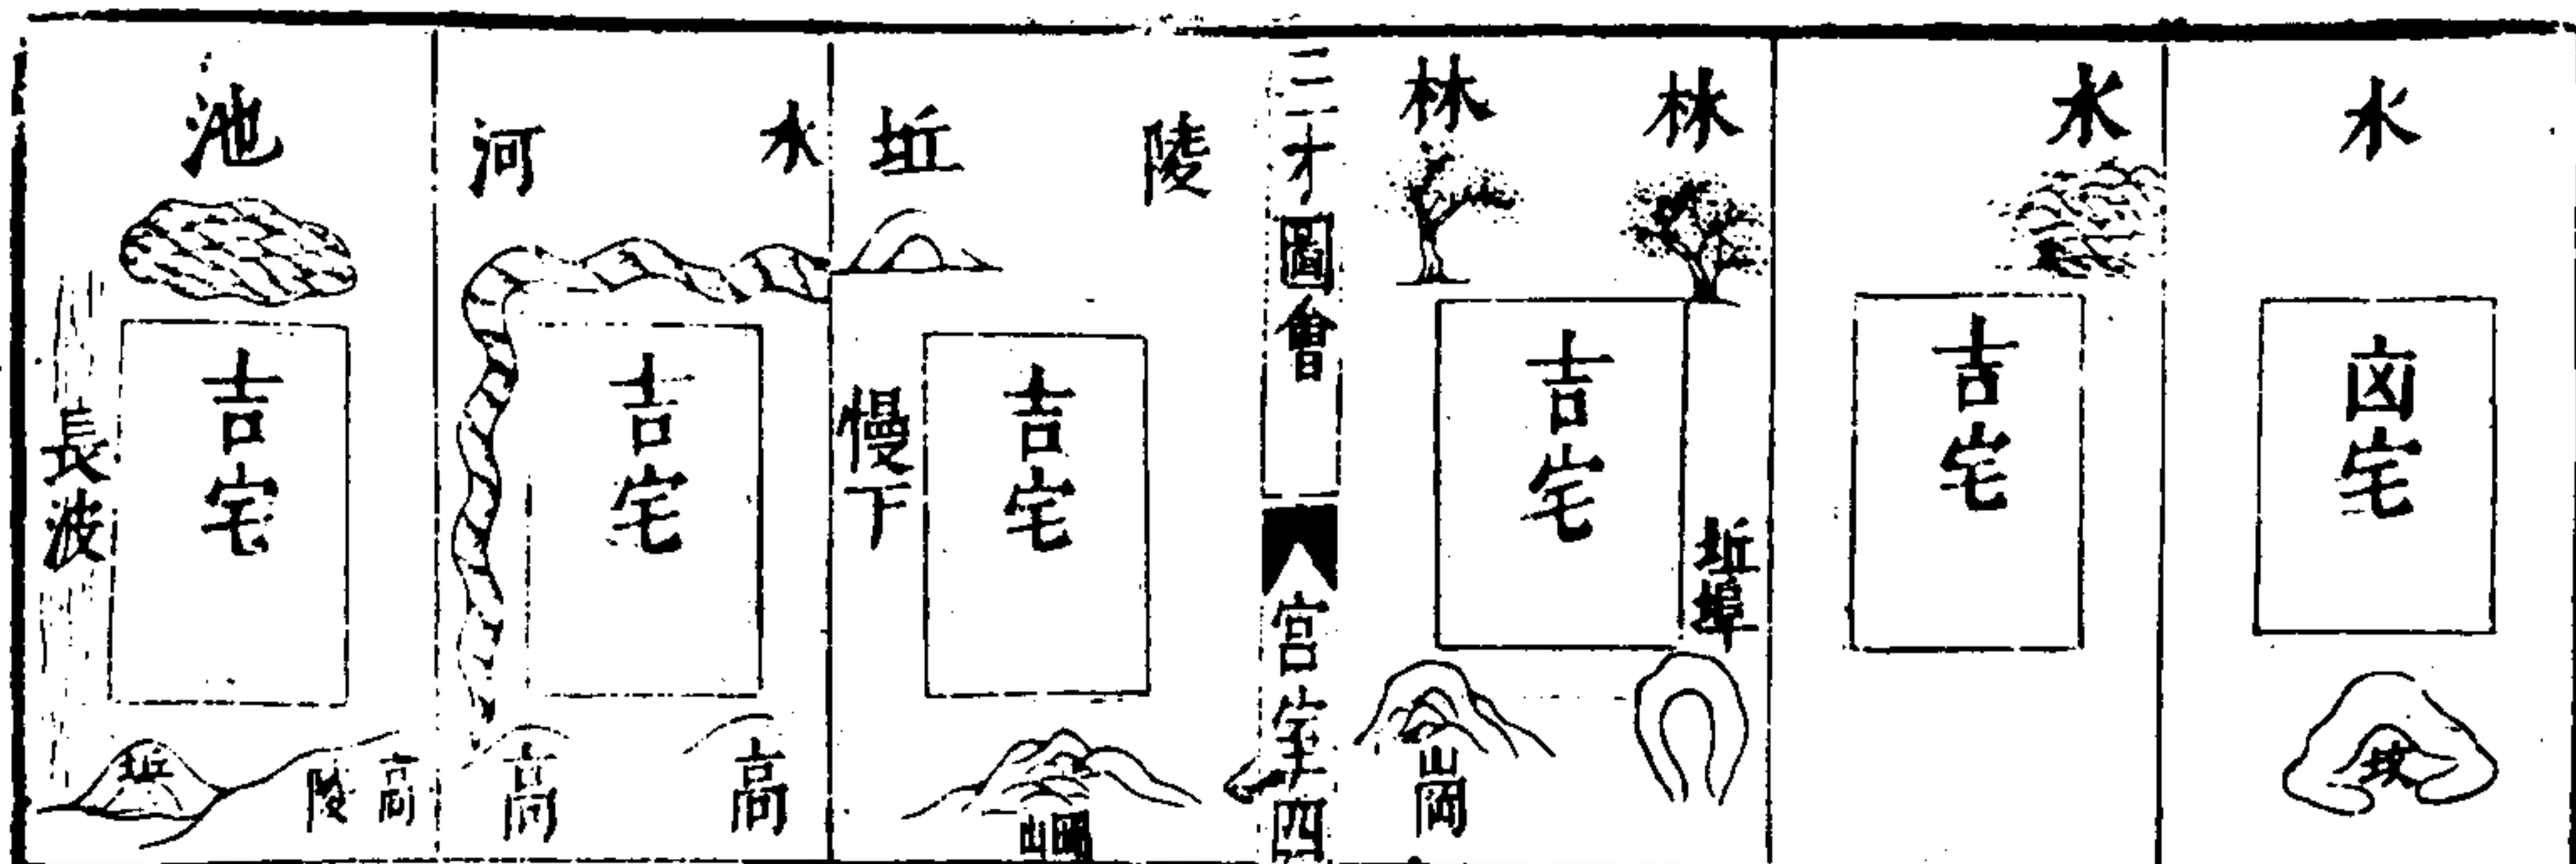 水
凶宅
坟
水
吉宅
林
林
吉宅
坵埠
山岡
三才圖會
宮室四
陵
坵
吉宅
慢下
水
河
吉宅
高
高
池
吉宅
長波
高
陵
坵